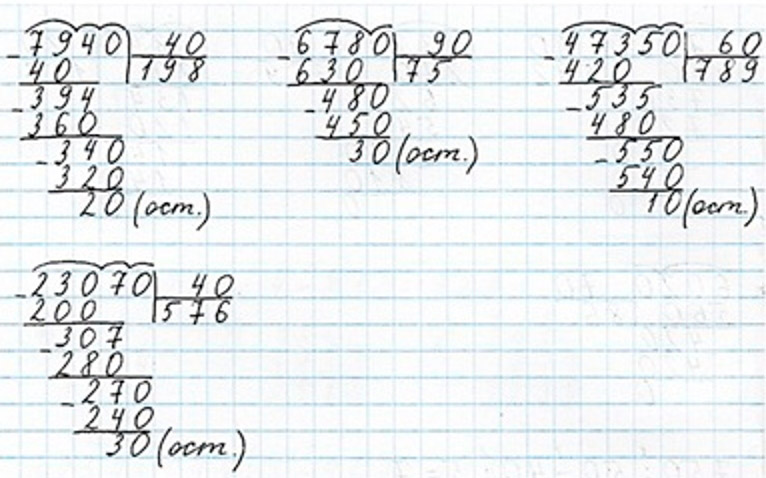 -7940 40
40 198
-394
360
-340
320
20 (ост.)
-6780 90
630 75
-480
450
30 (ост.)
-47350 60
420 789
-535
480
-550
540
10 (ост.)
-23070 40
200 576
-307
280
-270
240
30 (ост.)